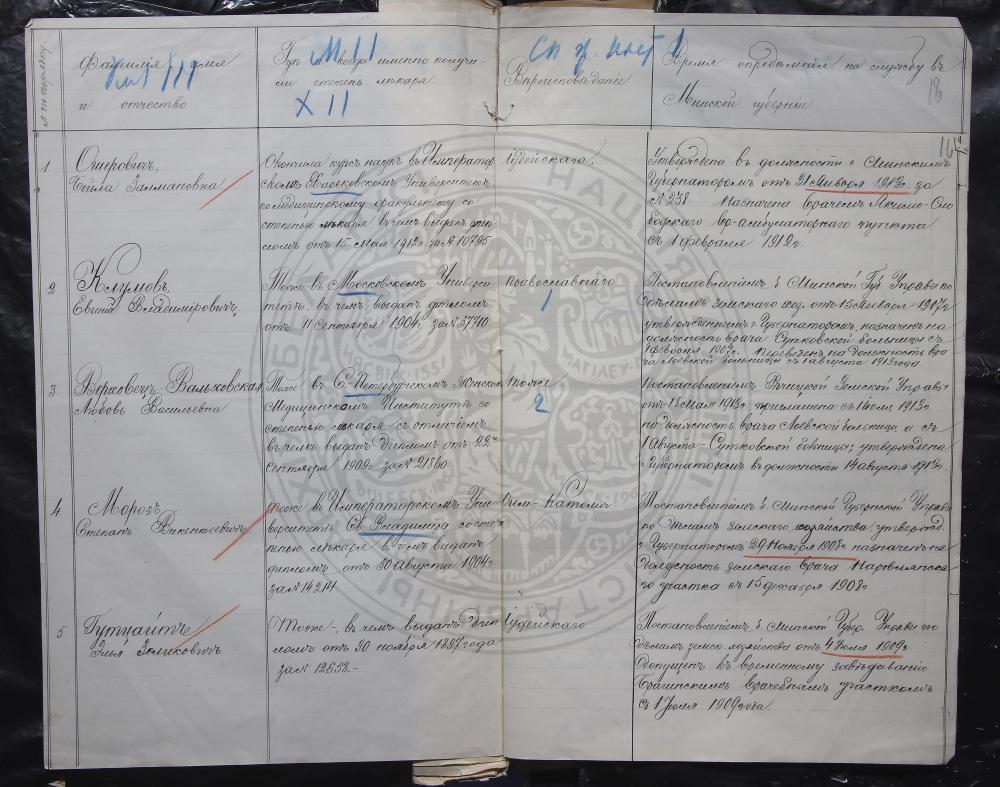 № по порядку
Фамилія, имя
и отчество
Гдѣ и когда именно получи-
ли степень лѣкаря
XII
Вѣроисповѣданіе
Время опредѣленія на службу въ
Минской губерніи
18
1
Ошеровичъ,
Бейла Залмановна
Окончила курсъ наукъ въ Император-
скомъ Харьковскомъ Университетѣ
по медицинскому факультету со
степенью лѣкаря въ чемъ выданъ дип-
ломъ отъ 15 Мая 1912 г за № 10795
Іудейскаго.
Утверждена въ должности г. Минскимъ
Губернаторомъ отъ 21 Января 1913 г. за
№ 238. Назначена врачемъ Якимо-Сло-
бодского вр-амбулаторнаго пункта
съ 1 февраля 1912 г.
2
Клумовъ,
Евгеній Владиміровичъ,
Тоже въ Московскомъ Универси-
тетѣ, въ чемъ выданъ дипломъ
отъ 11 Сентября 1904 г. за № 37710
Православнаго
1
Постановленіемъ б. Минской Губ. Управы по
дѣламъ земскаго хоз. отъ 15 Января 1907 г
утвержденнымъ г. Губернаторомъ, назначенъ на
должность врача Сутковской больницы съ
1 февраля 1907 г. Переведенъ на должность вра-
ча Лоевской больницы съ 1 августа 1913 года
3
Верховецъ-Вальховская
Любовь Васильевна
Тоже въ С.-Петербургскомъ Женском
Медицинскомъ Институтѣ со
степенью лѣкаря съ отличіемъ,
въ чемъ выданъ дипломъ отъ 22
Сентября 1909 г за № 21860
тоже
2
Постановленіемъ Рѣчицкой Земской Управы
отъ 18 Мая 1913 г. приглашена съ 1 Іюля 1913 г
на должность врача Лоевской больницы а съ
1 Августа - Сутковской больницы; утверждена
г. Губернаторомъ въ должности 14 августа 1913 г.
4
Морозъ,
Степанъ Викентьевичъ
тоже въ Императорскомъ Уни-
верситетѣ Св. Владиміра со сте-
пенью лѣкаря въ чемъ выданъ
дипломъ отъ 30 Августа 1904 г.
за № 14214
Рим-Катол.
Постановленіемъ б. Минской Губернской Управы
по дѣламъ земскаго хозяйства, утвержд.
г. Губернаторомъ 29 Ноября 1908 г. назначенъ на
должность земскаго врача Наровлянска-
го участка съ 15 декабря 1908 г.
5
Гутцайтъ
Илья Зеликовичъ
Тоже-, въ чемъ выданъ дип
ломъ отъ 30 ноября 1897 года
за № 12658.-
Іудейскаго
Постановленіемъ б. Минской Губер. Управы по
дѣламъ земск. хозяйства отъ 4 Іюля 1909 г.
Допущенъ къ временному завѣдыванію
Брагинскимъ врачебнымъ участкомъ
съ 1 Іюля 1909 года.